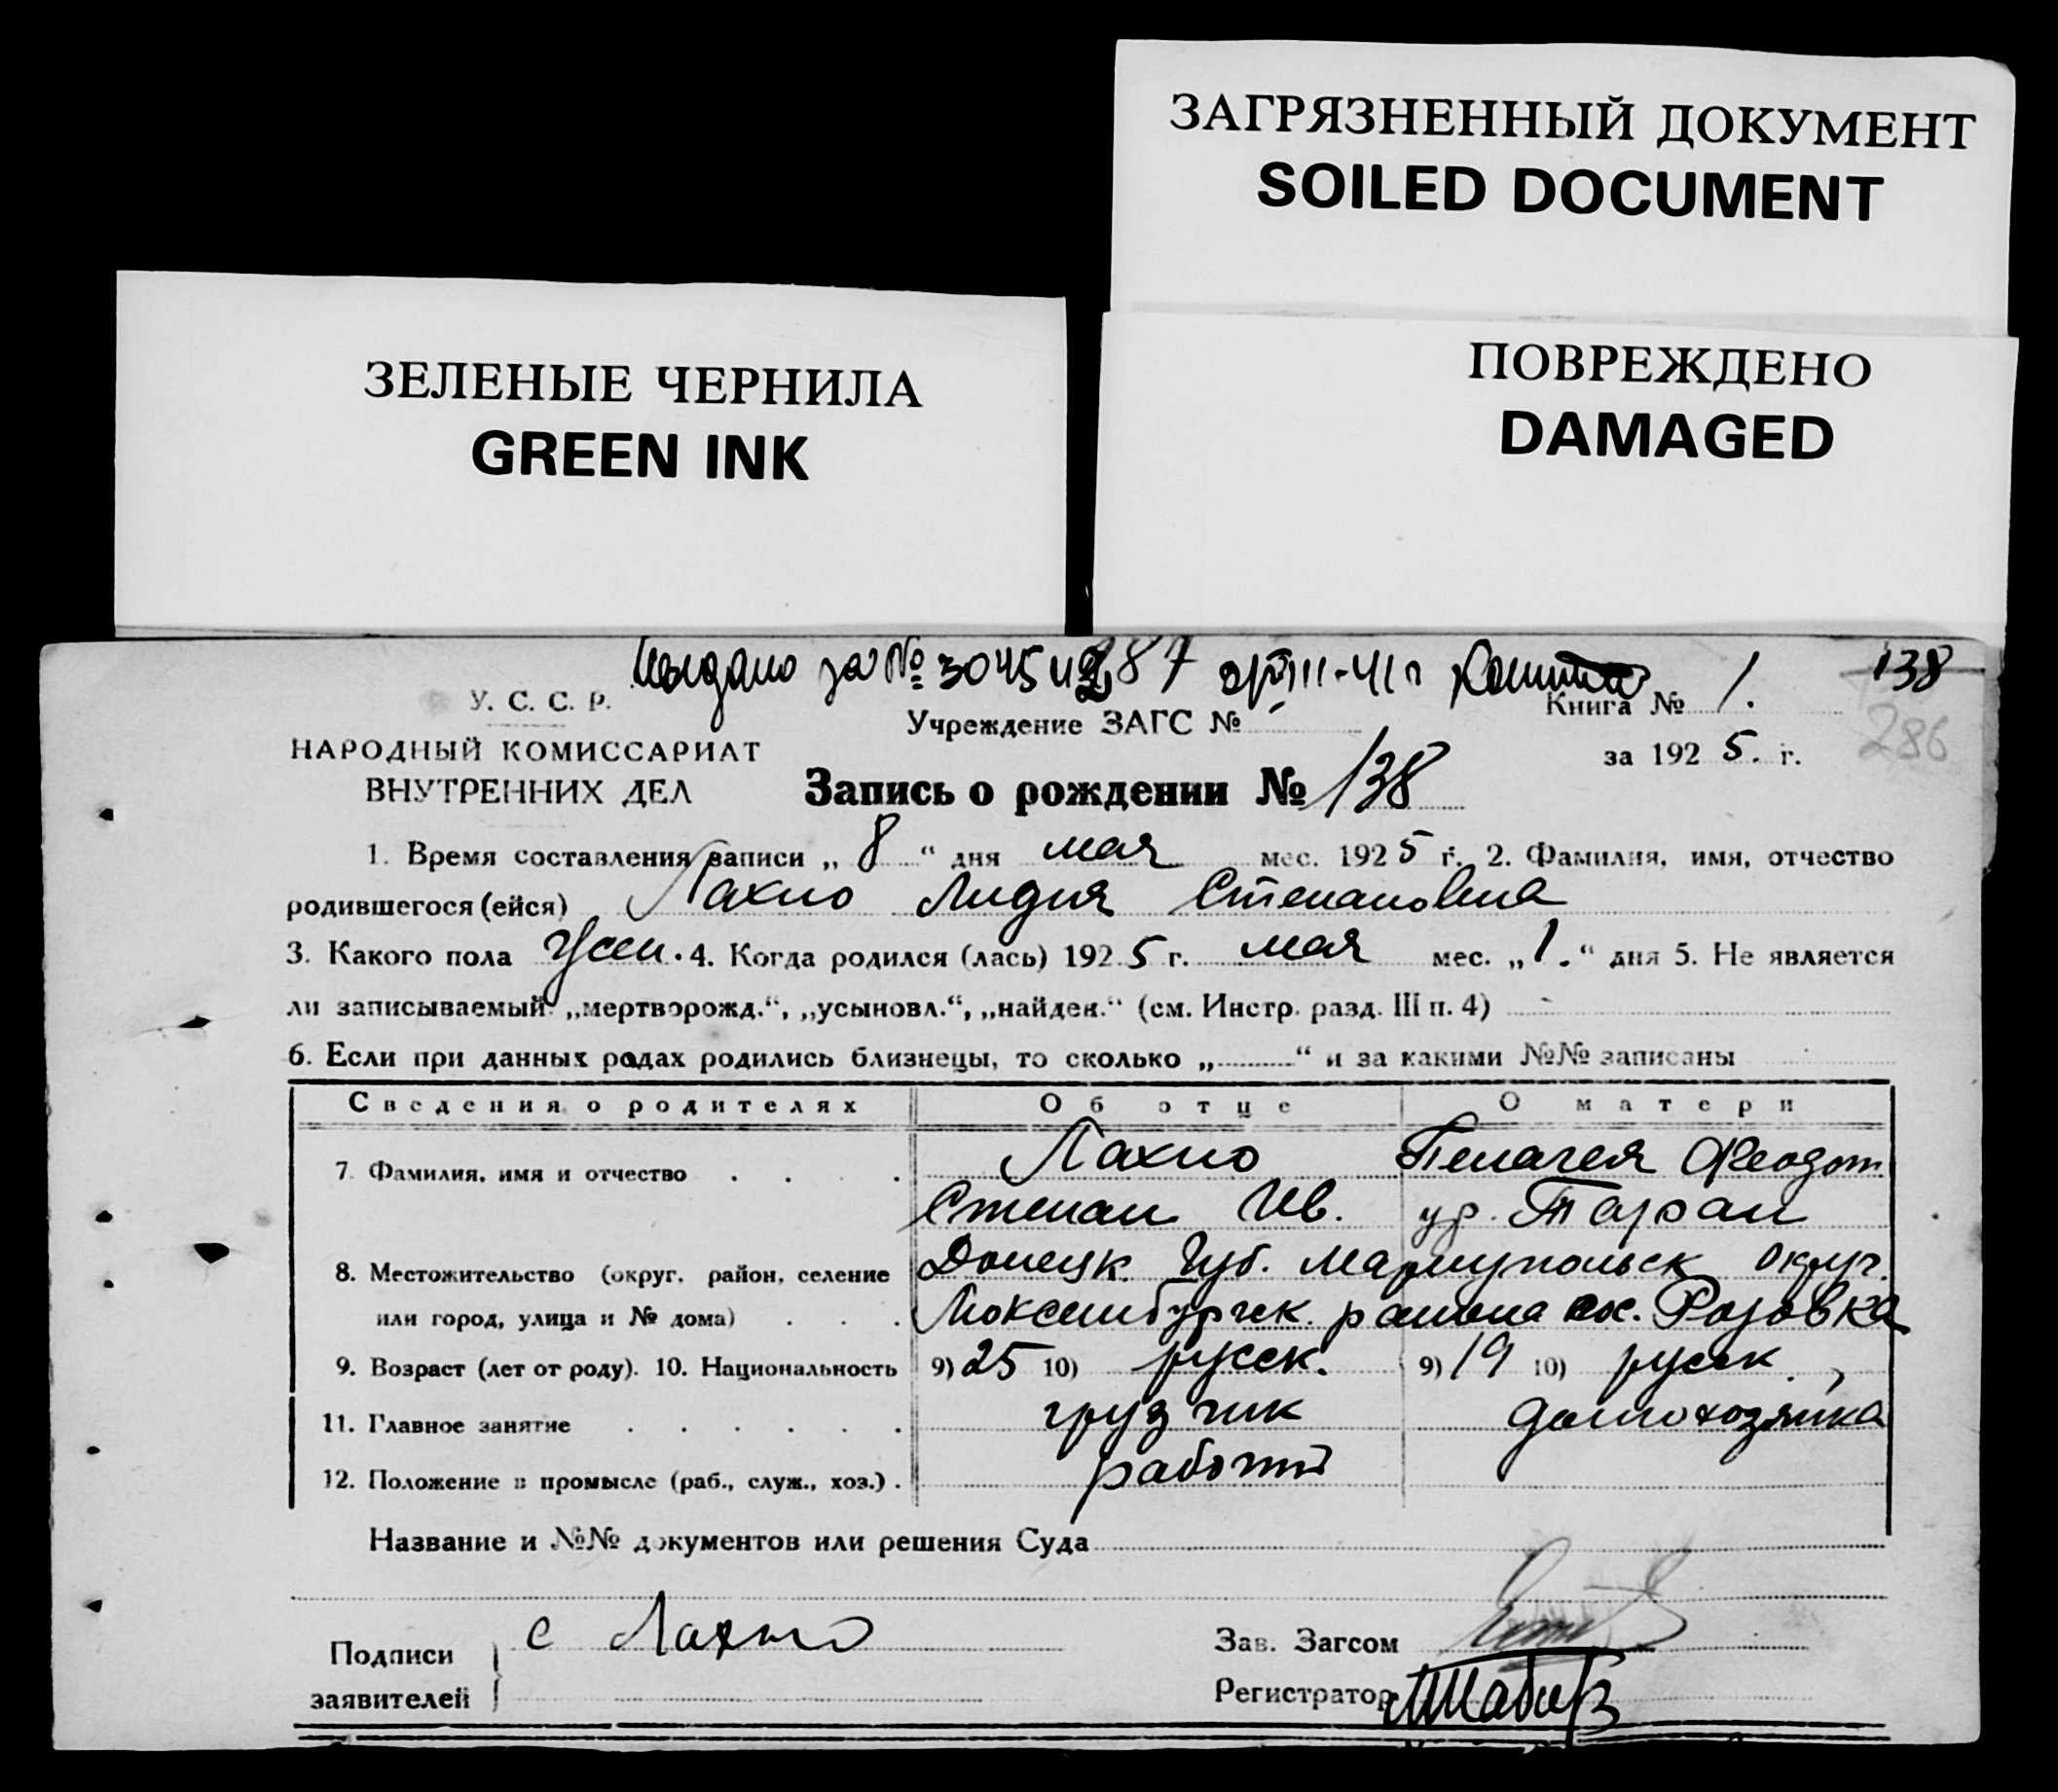 ЗАГРЯЗНЕННЫЙ ДОКУМЕНТ
SOILED DOCUMENT
ЗЕЛЕНЫЕ ЧЕРНИЛА
GREEN INK
ПОВРЕЖДЕНО
DAMAGED
за № 3045 138
У. С. С. Р.
НАРОДНЫЙ КОМИССАРИАТ
ВНУТРЕННИХ ДЕЛ
Учреждение ЗАГС №
Книга № 1.
за 1925. г.
286
Запись о рождении № 138
1. Время составления записи „ 8 “ дня мая мес. 1925 г. 2. Фамилия, имя, отчество
родившегося (ейся) Лахно Лидия Степановна
3. Какого пола жен. 4. Когда родился (лась) 1925 г. мая мес. „ 1. “ дня 5. Не является
ли записываемый „мертворожд.“, „усыновл.“, „найден.“ (см. Инстр. разд. III п. 4)
6. Если при данных родах родились близнецы, то сколько „ “ и за какими №№ записаны
Сведения о родителях Об отце О матери
7. Фамилия, имя и отчество Лахно Пелагея Феодот
Степан Ив. ур. Таран
8. Местожительство (округ, район, селение Донецк. Губ. Мариупольск округ.
или город, улица и № дома) Люксембургск. района Розовка
9. Возраст (лет от роду). 10. Национальность 9) 25 10) русск. 9) 19 10) русск.
11. Главное занятие грузчик домохозяйка
12. Положение в промысле (раб., служ., хоз.)
Название и №№ документов или решения Суда
Подписи заявителей с Лахно
Зав. Загсом
Регистратор